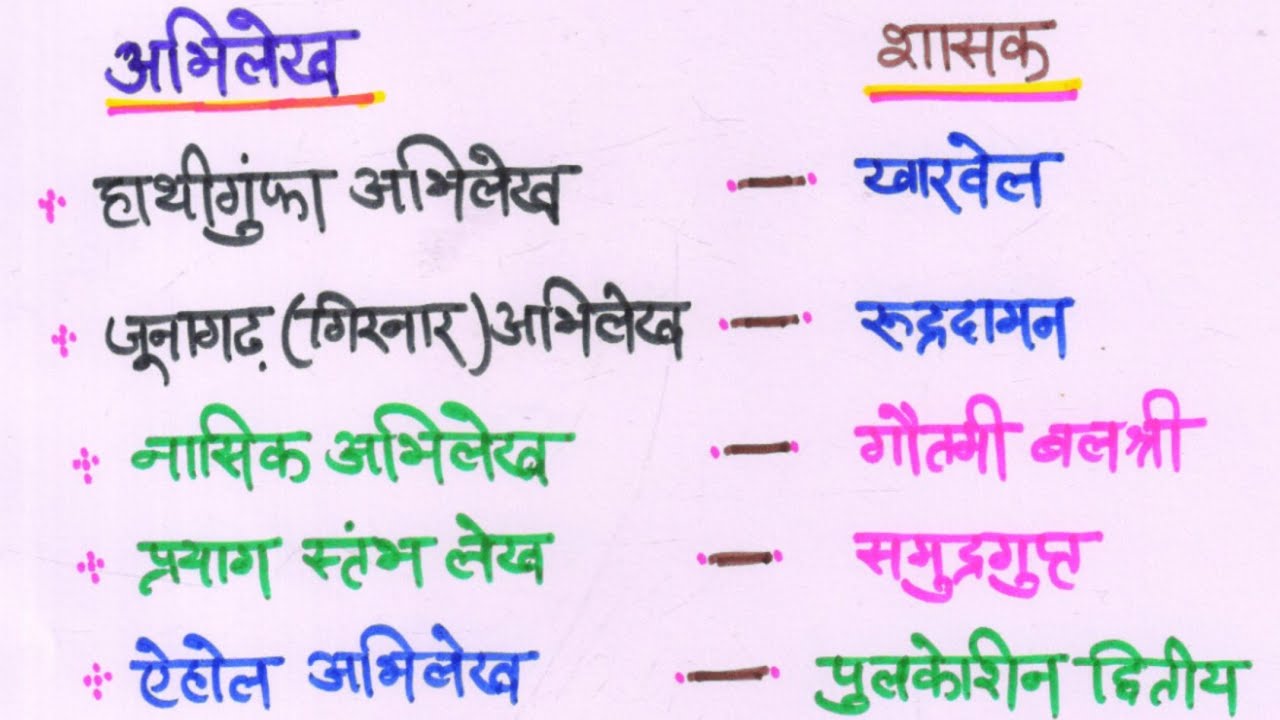 अभिलेख शासक
हाथीगुंफा अभिलेख — खारवेल
जूनागढ़ (गिरनार) अभिलेख — रूद्रदामन
नासिक अभिलेख — गौतमी बलश्री
प्रयाग स्तंभ लेख — समुद्रगुप्त
ऐहोल अभिलेख — पुलकेशीन द्वितीय